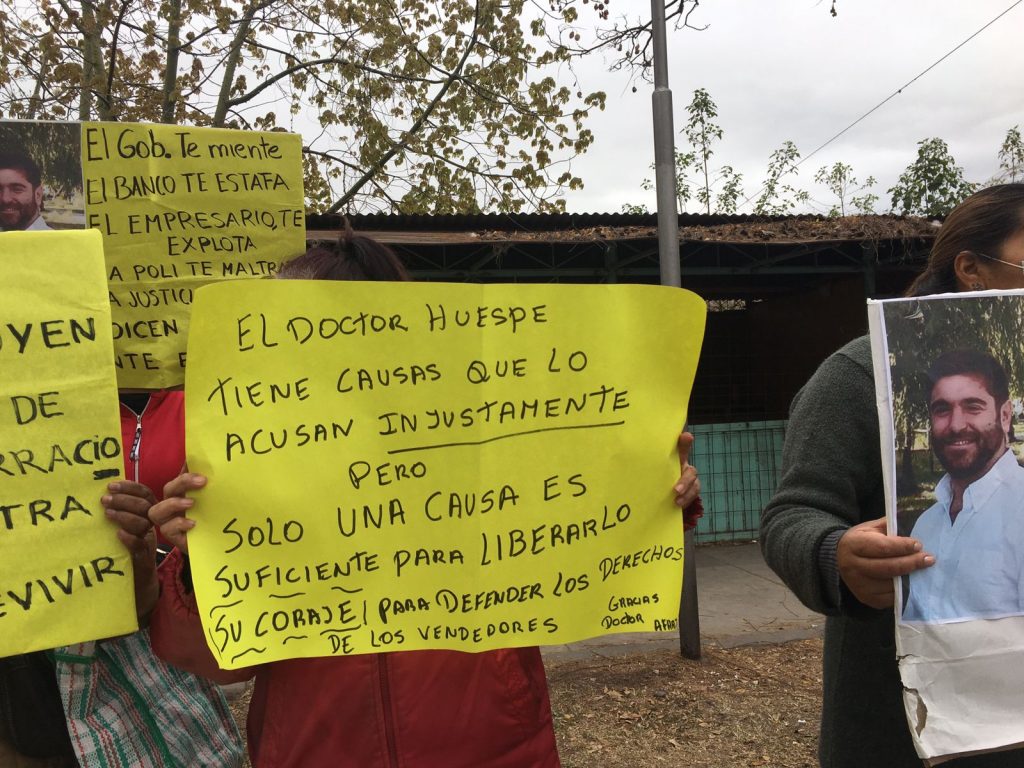 El Gob. Te miente
El BANCO TE ESTAFA
EL EMPRESARIO, TE
EXPLOTA
A POLI TE MALTR
A JUSTICI
DICEN
NTE E
UYEN
DE
RRACIO
TRA
EVIVIR
EL DOCTOR HUESPE
TIENE CAUSAS QUE LO
ACUSAN INJUSTAMENTE
PERO
SOLO UNA CAUSA ES
SUFICIENTE PARA LIBERARLO
(SU CORAJE) PARA DEFENDER LOS DERECHOS
DE LOS VENDEDORES
GRACIAS
DOCTOR